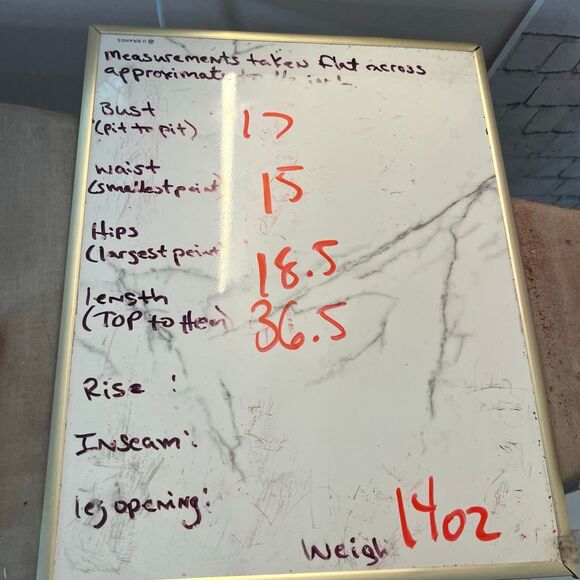 U BRANDS
Measurements taken flat across
approximate
Bust
(pit to pit) 17
waist
(smallest point 15
Hips
(largest point 18.5
length
(TOP to Hem) 36.5
Rise :
Inseam:
leg opening:
Weigh 14oz